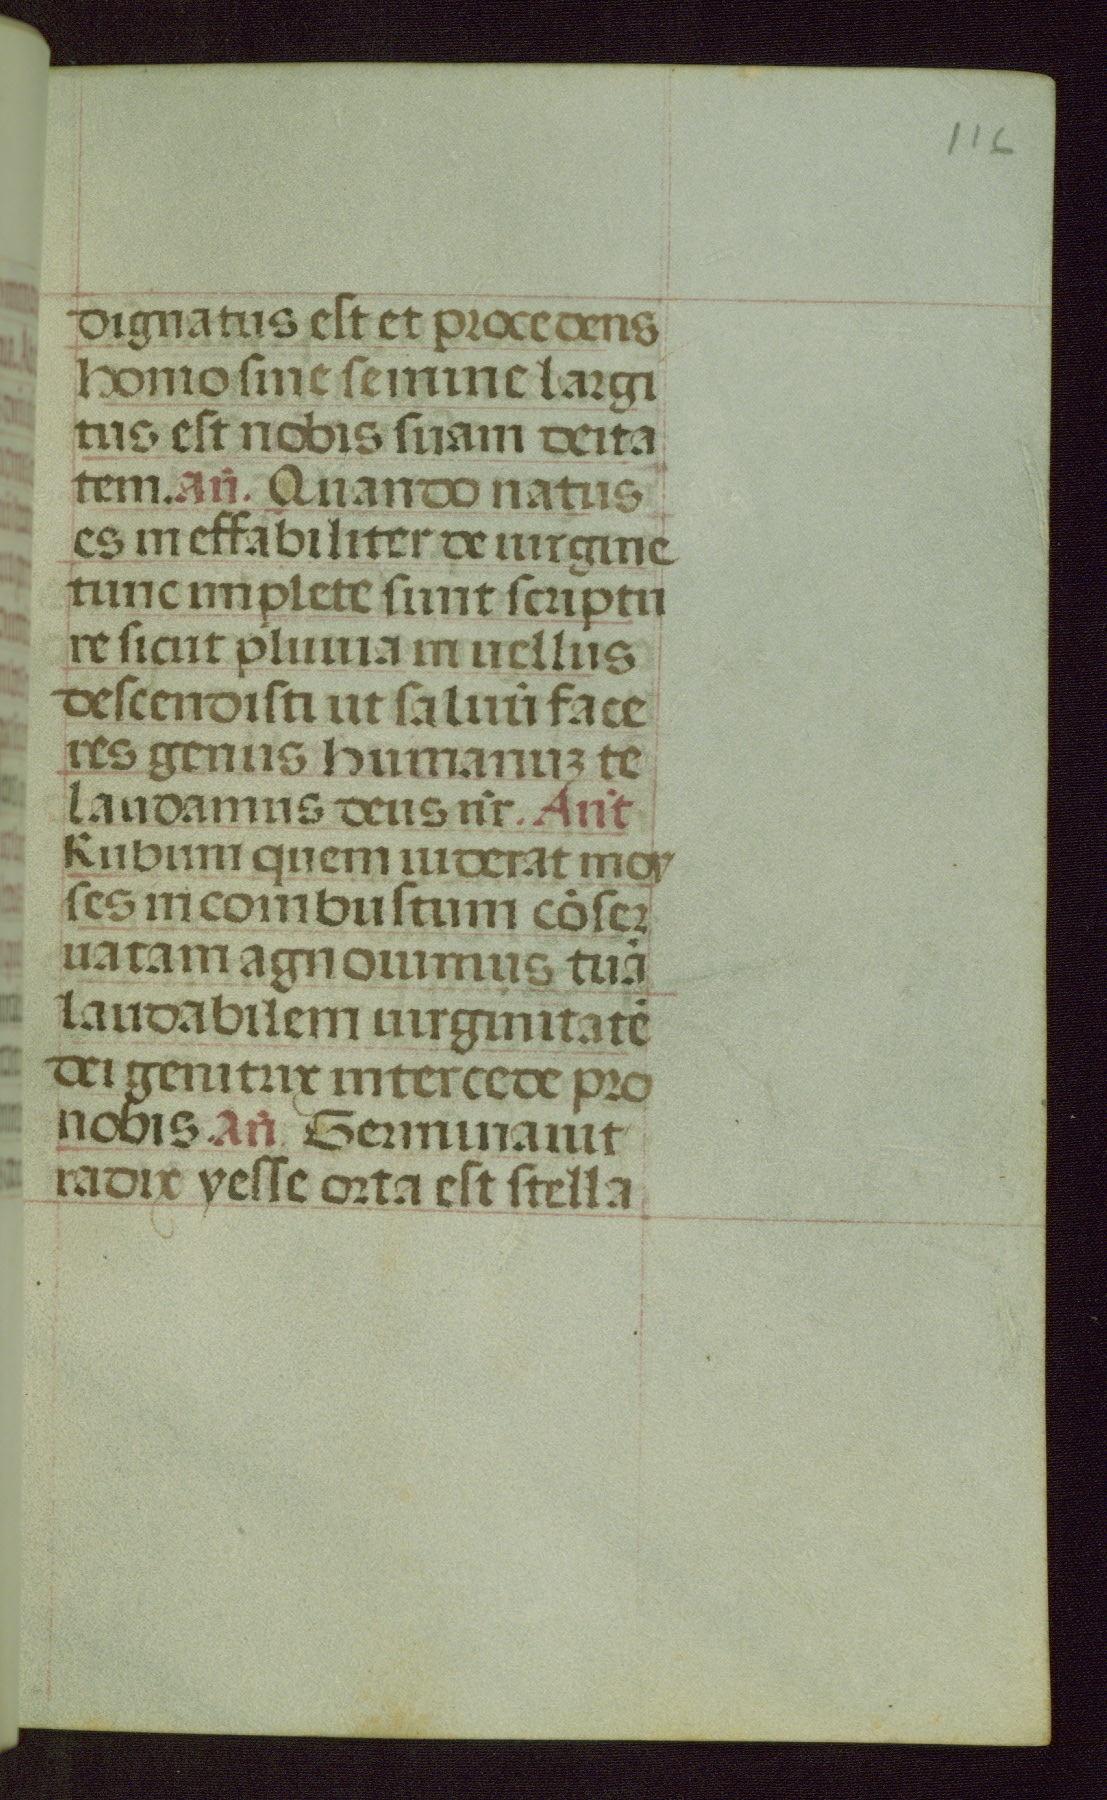 116
dignatus est et procedens
homo sine semine largi
tus est nobis suam deita
tem. Añ. Quando natus
es ineffabiliter de uirgine
tunc implete sunt scriptu
re sicut pluuia in uellus
descendisti ut saluū face
res genus humanuʒ te
laudamus deus nr̄. Ant̄
Rubum quem uiderat moy
ses incombustum cōser
uatam agnouimus tuā
laudabilem uirginitatē
dei genitrix intercede pro
nobis. Añ. Germinauit
radix yesse orta est stella